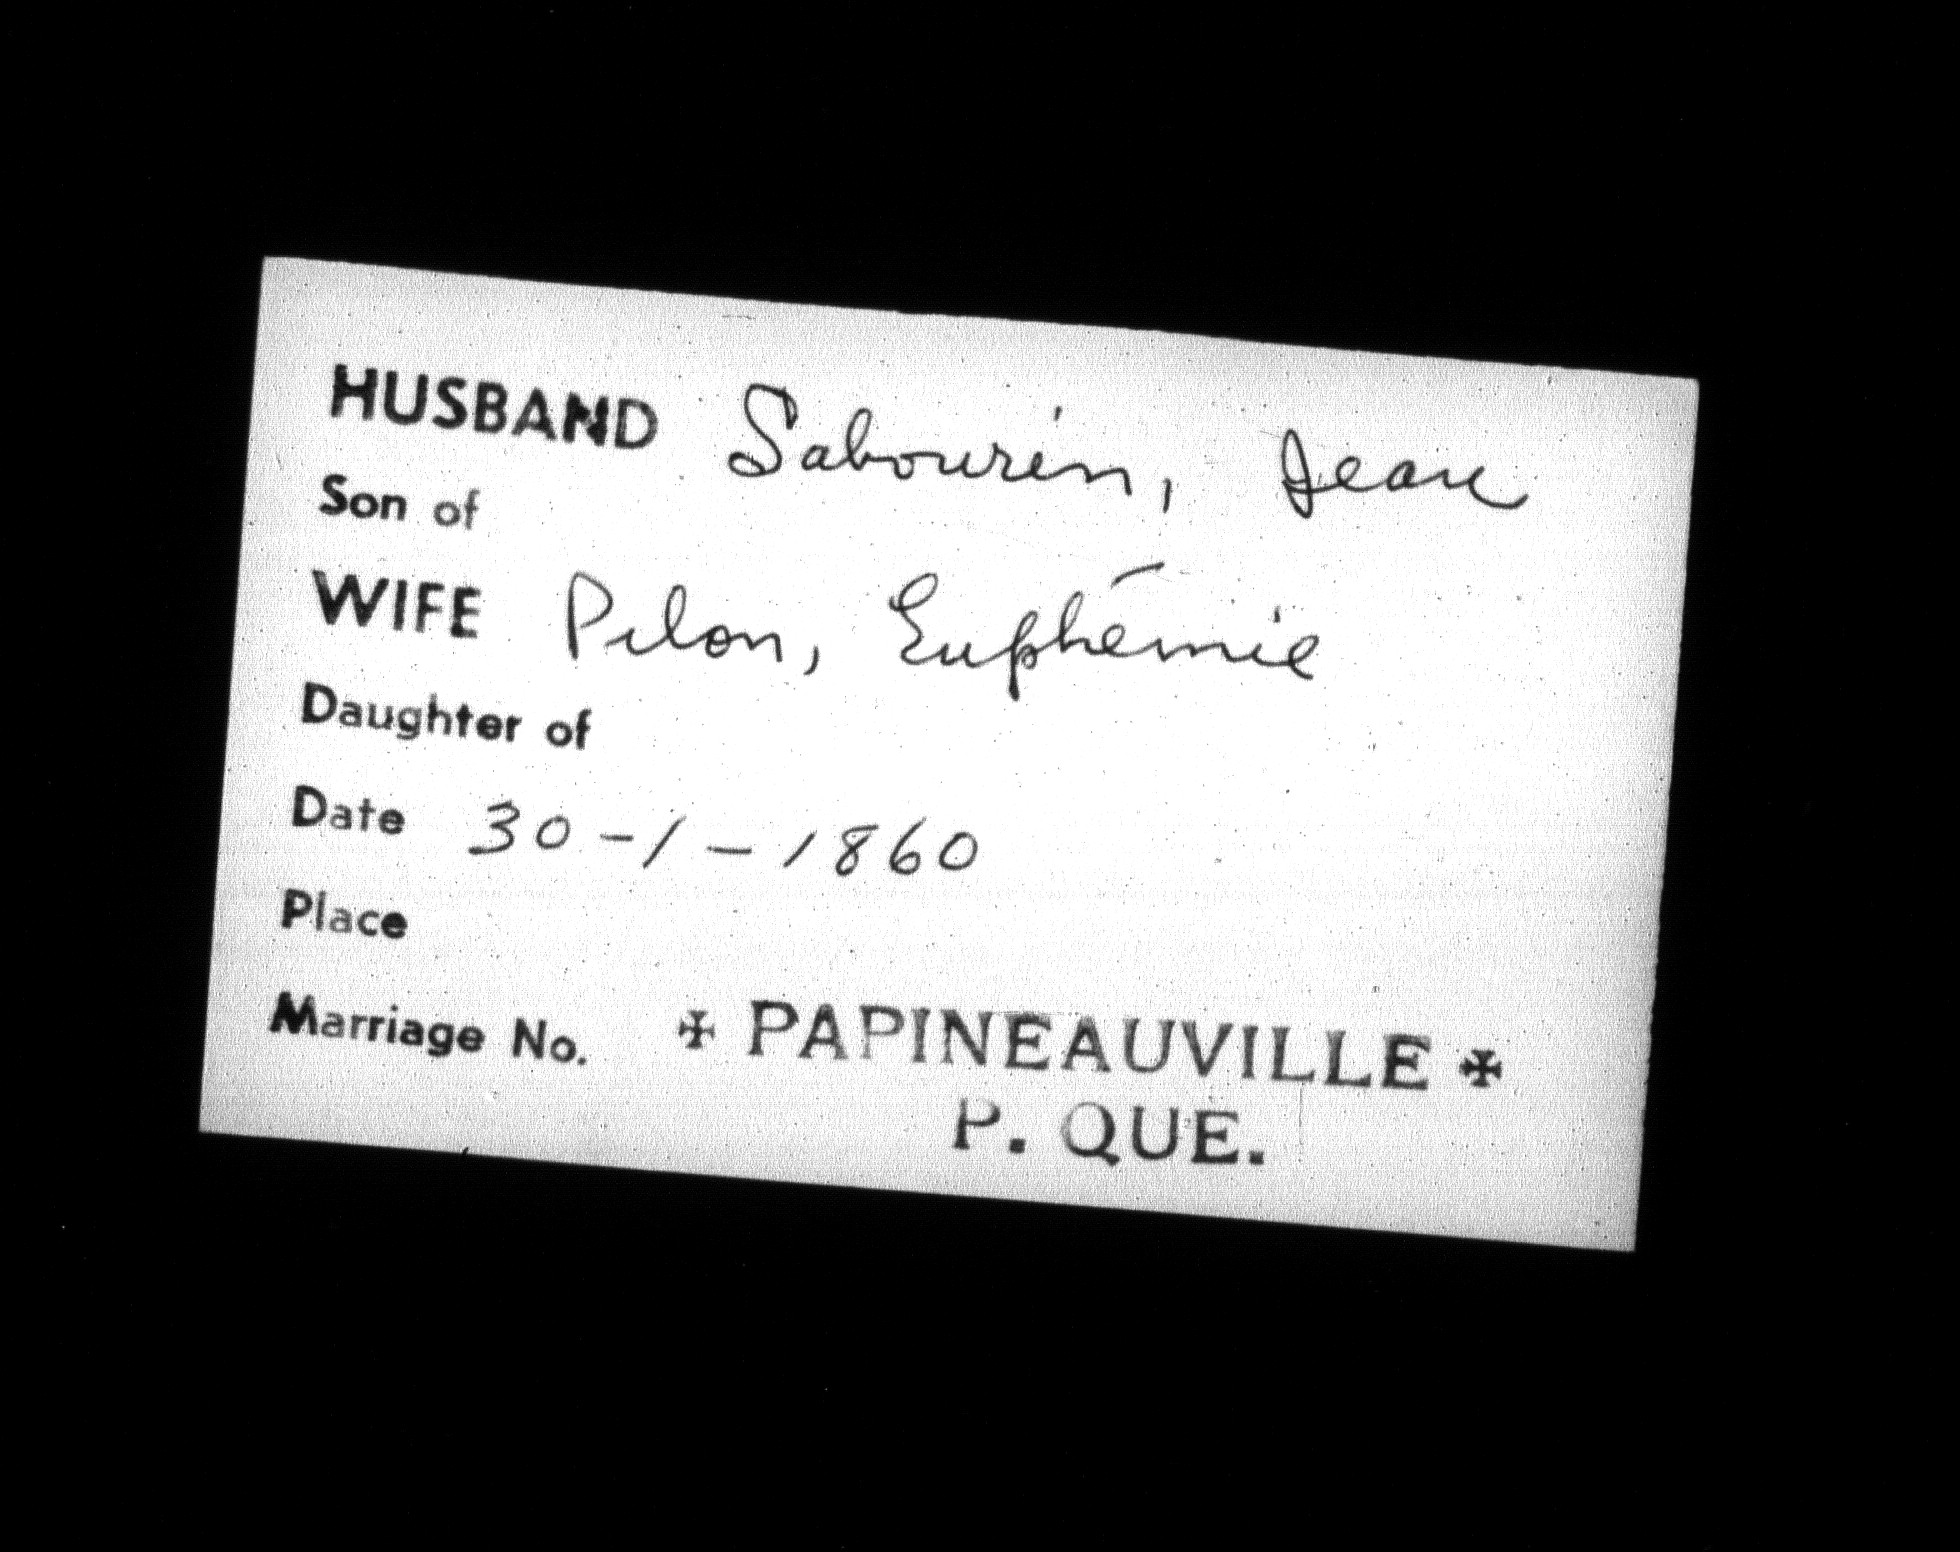 HUSBAND Sabourin, Jean
Son of
WIFE Pilon, Euphémie
Daughter of
Date 30-1-1860
Place
Marriage No. ✠ PAPINEAUVILLE ✠
P. QUE.